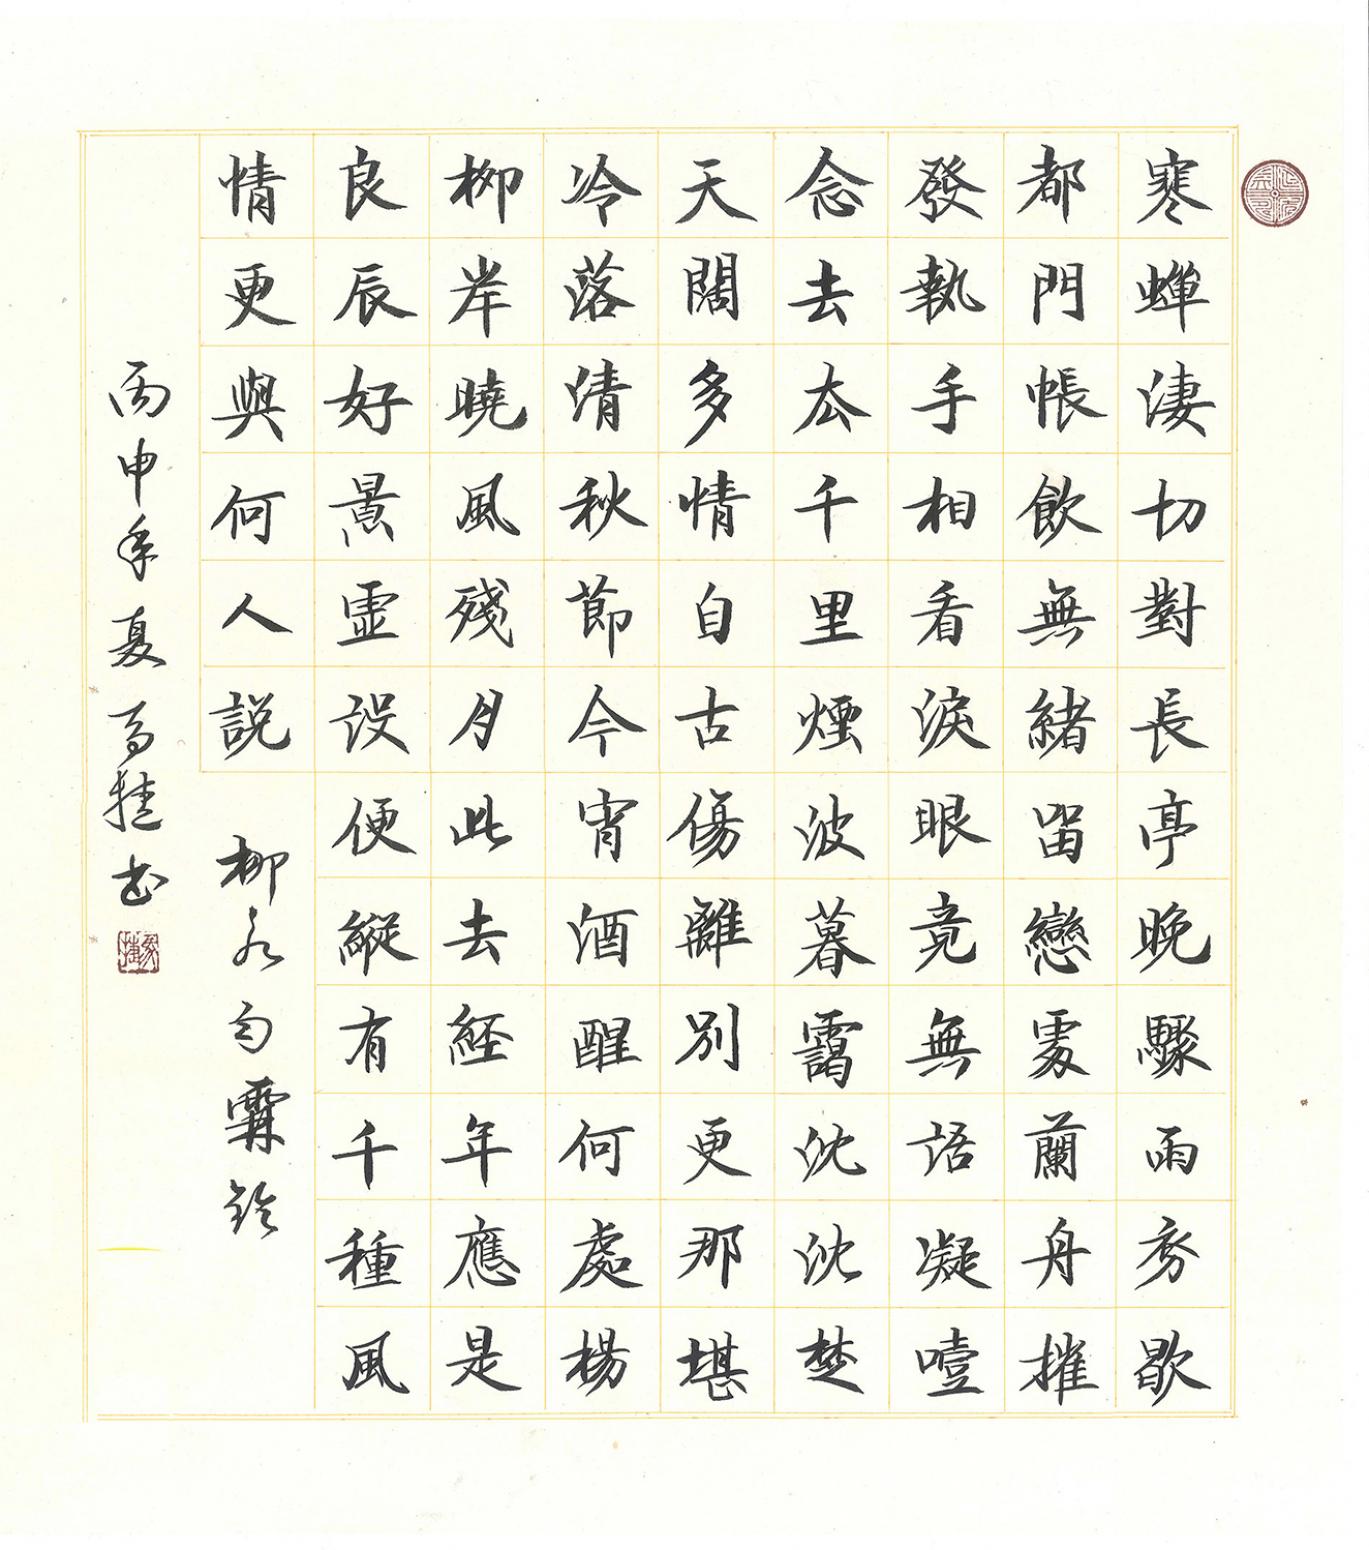 寒蟬淒切對長亭晚驟雨初歇
都門帳飲無緒留戀處蘭舟摧
發執手相看淚眼竟無語凝噎
念去去千里煙波暮靄沈沈楚
天闊多情自古傷離別更那堪
冷落清秋節今宵酒醒何處楊
柳岸曉風殘月此去經年應是
良辰好景虛設便縱有千種風
情更與何人說
柳永雨霖鈴
丙申年夏馬捷书